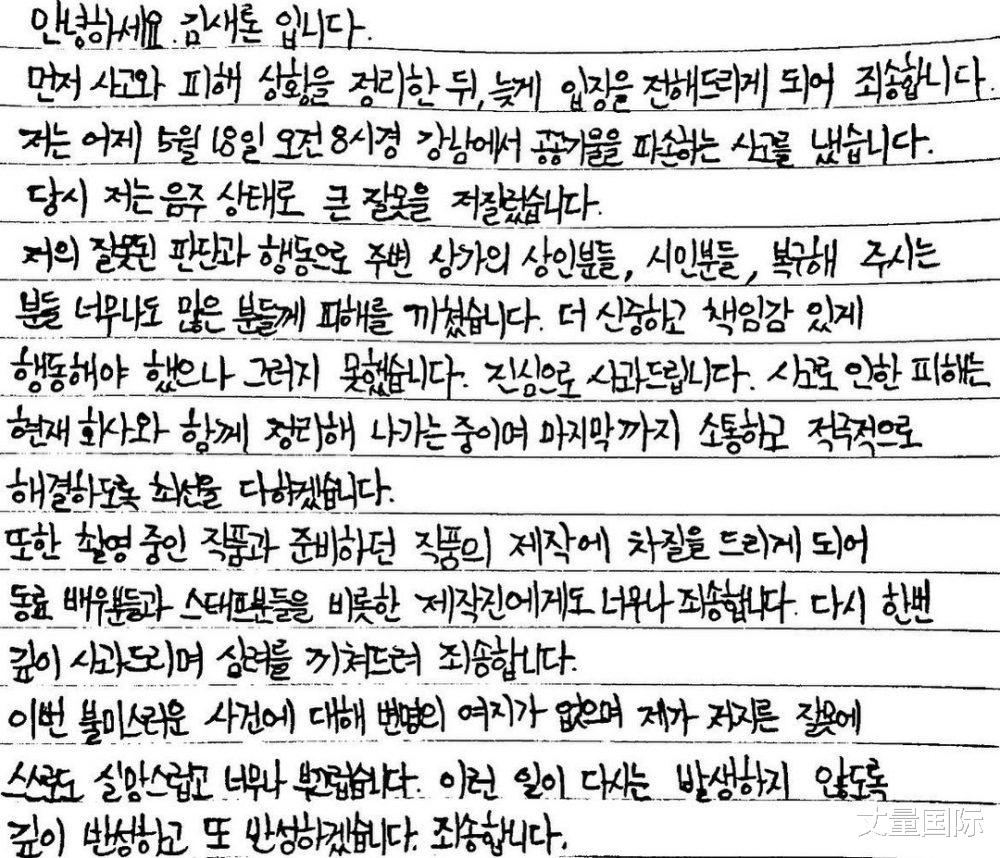 안녕하세요. 김새론 입니다.
먼저 사고와 피해 상황을 정리한 뒤, 늦게 입장을 전해드리게 되어 죄송합니다.
저는 어제 5월 18일 오전 8시경 강남에서 공공기물을 파손하는 사고를 냈습니다.
당시 저는 음주 상태로 큰 잘못을 저질렀습니다.
저의 잘못된 판단과 행동으로 주변 상가의 상인분들, 시민분들, 복구해 주시는
분들 너무나도 많은 분들께 피해를 끼쳤습니다. 더 신중하고 책임감 있게
행동해야 했으나 그러지 못했습니다. 진심으로 사과드립니다. 사고로 인한 피해는
현재 회사와 함께 정리해 나가는 중이며 마지막까지 소통하고 적극적으로
해결하도록 최선을 다하겠습니다.
또한 촬영 중인 작품과 준비하던 작품의 제작에 차질을 드리게 되어
동료 배우분들과 스태프분들을 비롯한 제작진에게도 너무나 죄송합니다. 다시 한번
깊이 사과드리며 심려를 끼쳐드려 죄송합니다.
이번 불미스러운 사건에 대해 변명의 여지가 없으며 제가 저지른 잘못에
스스로도 실망스럽고 너무나 부끄럽습니다. 이런 일이 다시는 발생하지 않도록
깊이 반성하고 또 반성하겠습니다. 죄송합니다.
丈量国际